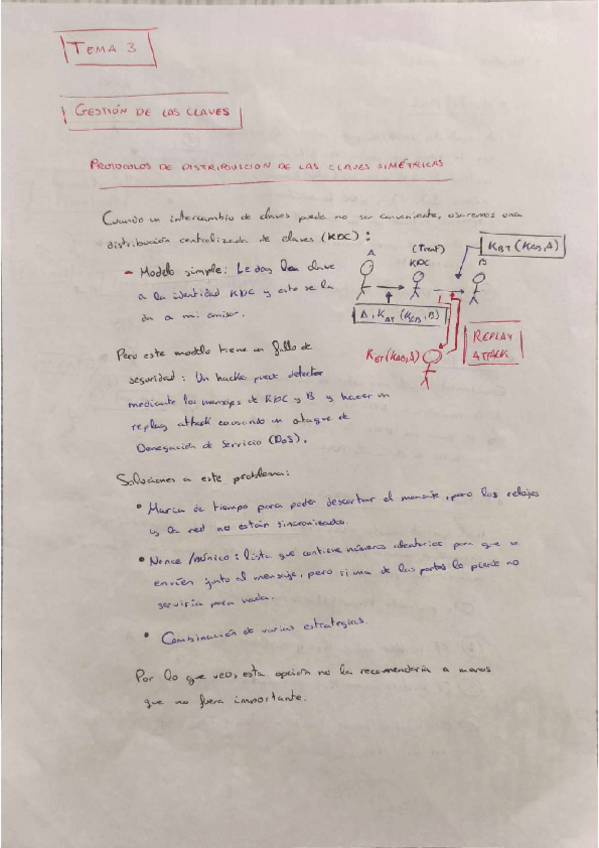 TEMA 3
GESTIÓN DE LAS CLAVES
PROTOCOLOS DE DISTRIBUCIÓN DE LAS CLAVES SIMÉTRICAS
Cuando un intercambio de claves puede no ser conveniente, usaremos una
distribución centralizada de claves (KDC):
- Modelo simple: Le das la clave
a la identidad KDC y esto se la
da a mi emisor.
A
(Trent)
KDC
B
K_BT (K_AB, A)
A, K_AT (K_AB, B)
K_BT (K_AB, A)
REPLAY
ATTACK
Pero este modelo tiene un fallo de
seguridad: Un hacker puede detectar
mediante los mensajes de KDC y B y hacer un
replay attack causando un ataque de
Denegación de Servicio (DoS).
Soluciones a este problema:
• Marca de tiempo para poder descartar el mensaje, pero los relojes
y la red no están sincronizados.
• Nonce /núnico: lista que contiene números aleatorios para que se
envíen junto al mensaje, pero si una de las partes lo pierde no
serviría para nada.
• Combinación de varias estrategias.
Por lo que veo, esta opción no la recomendaría a menos
que no fuera importante.